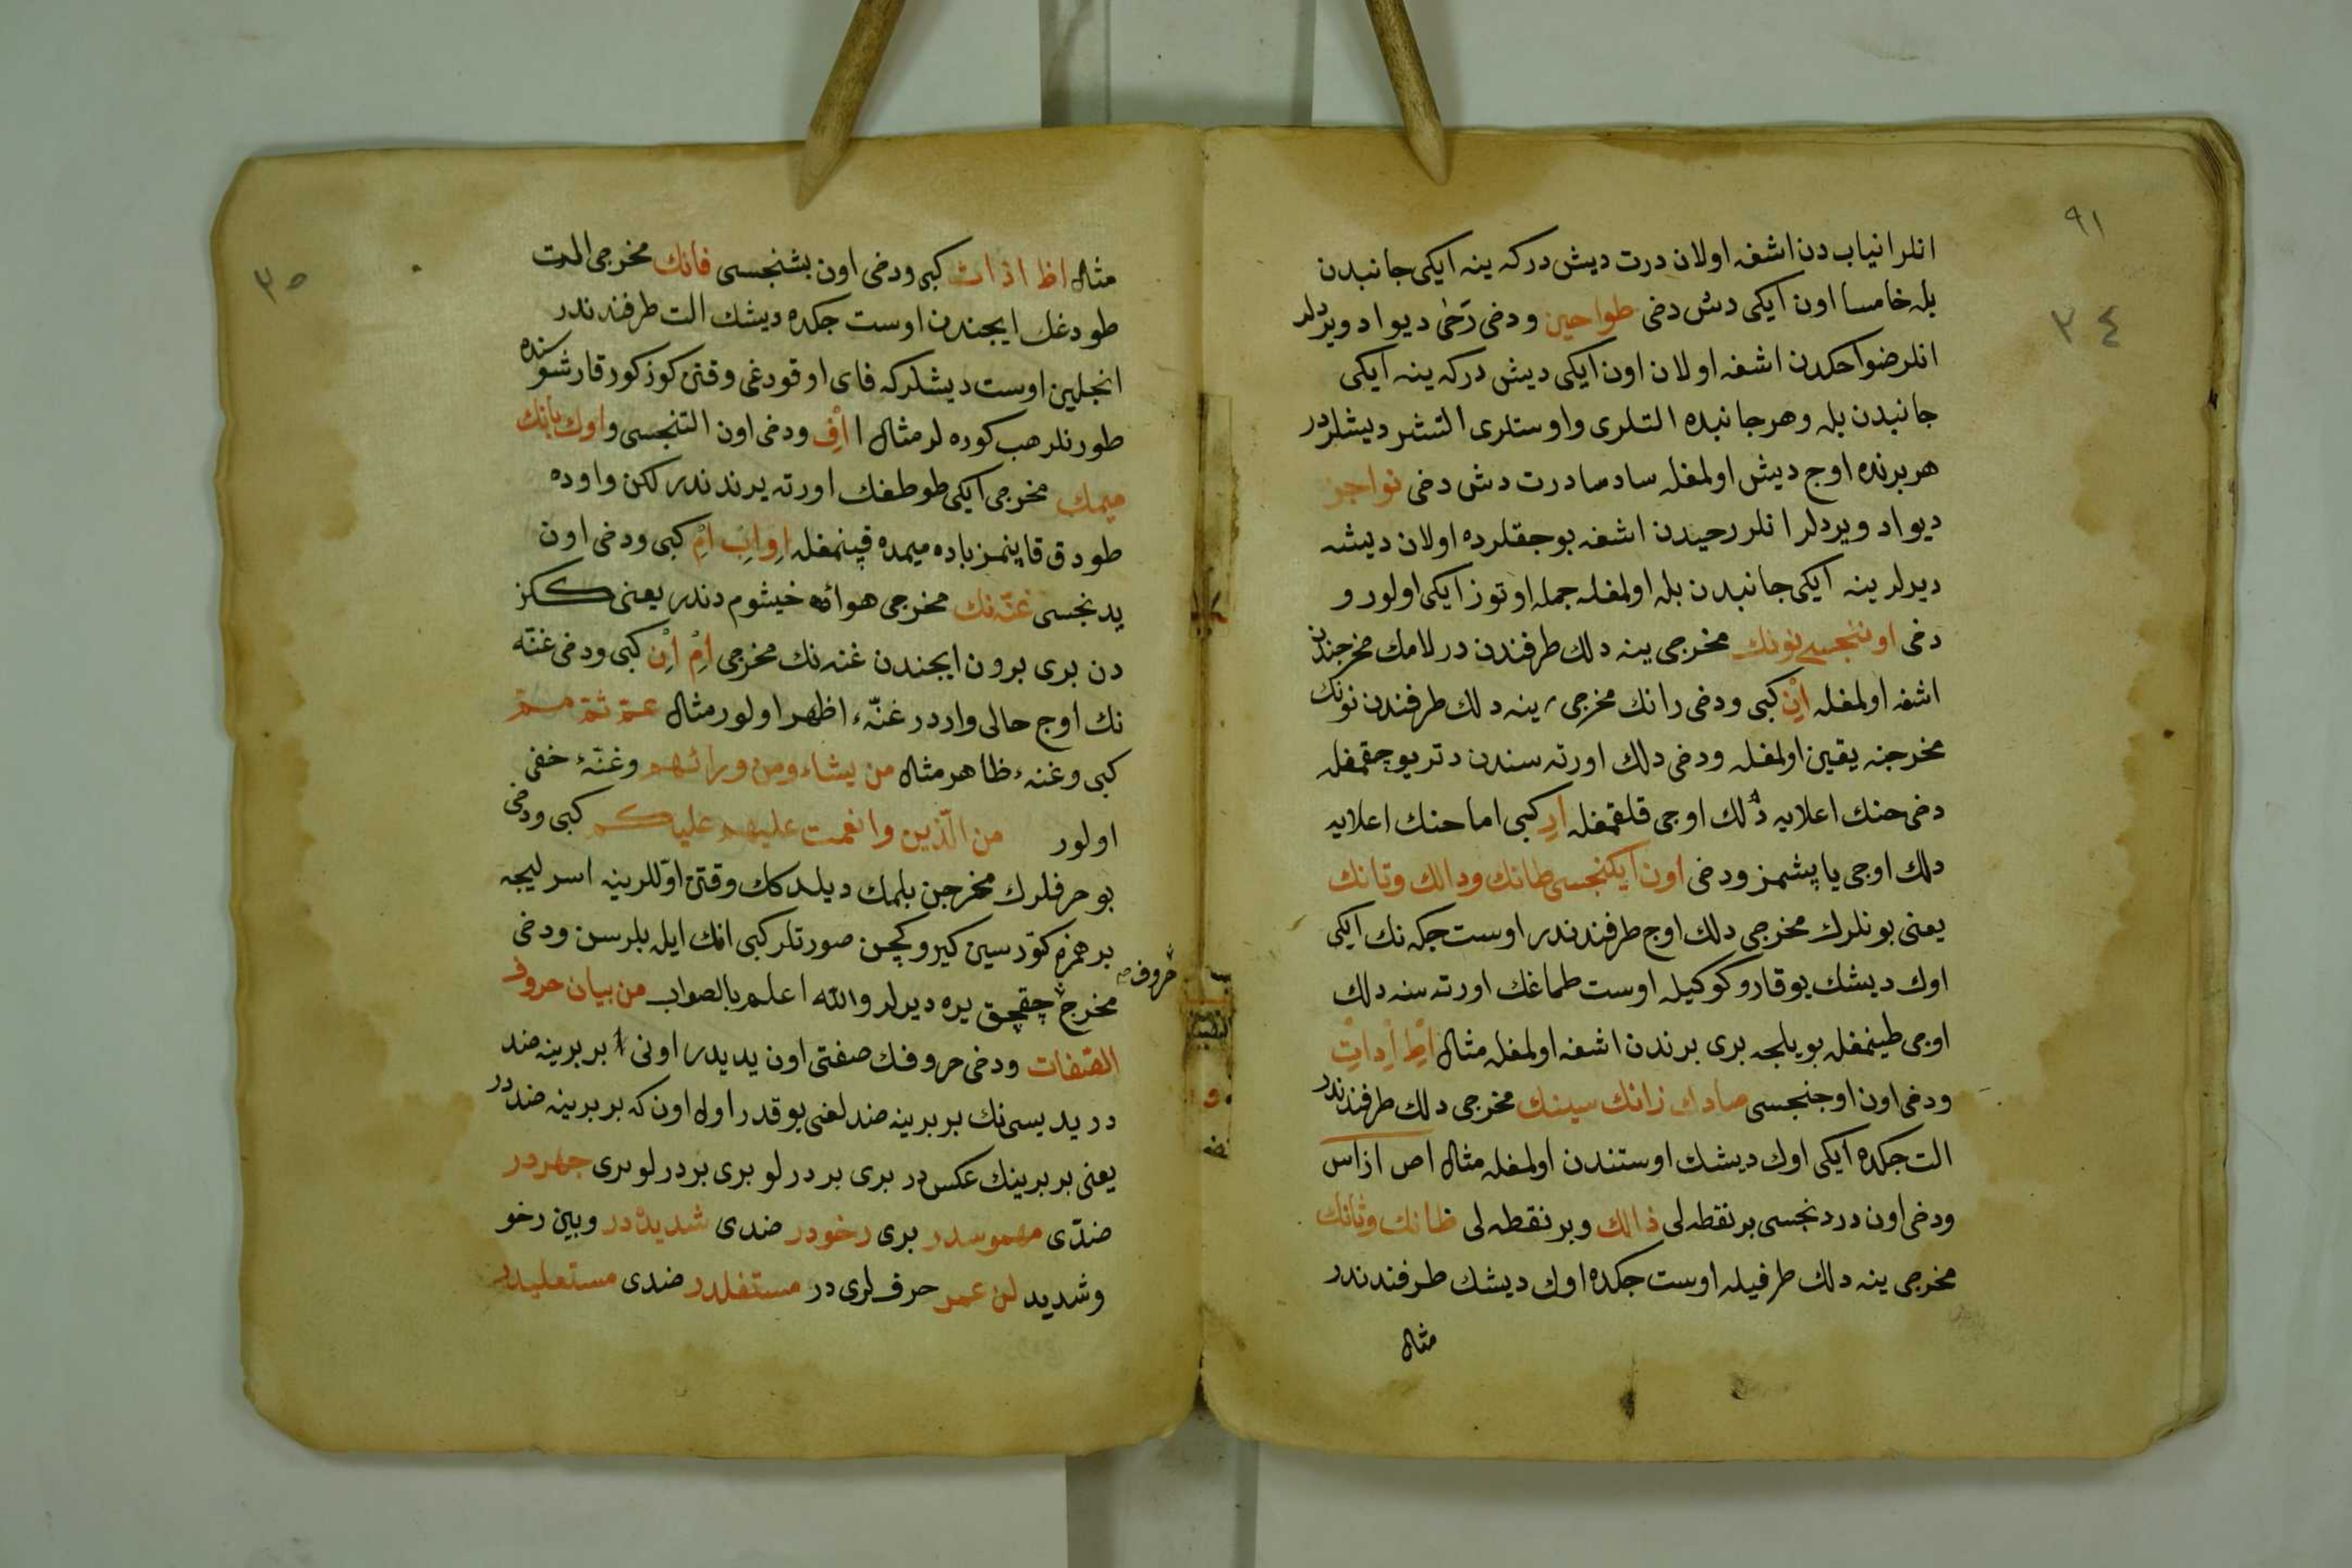 ٩١
٣٤
انلر انیاب دن اشغه اولان درت دیش در که ینه ایکی جانبدن
بله خامسا اون ایکی دش دخی طواحین و دخی رَحٰی دیو اد ویردلر
انلر ضواحکدن اشغه اولان اون ایکی دیش در که ینه ایکی
جانبدن بله و هر جانبده التلری و اوستلری التشر دیشلردر
هر برنده اوج دیش اولمغله سادسا درت دش دخی نواجز
دیو اد ویردلر انلر رحیدن اشغه بوجقلرده اولان دیشه
دیرلر ینه ایکی جانبدن بله اولمغله جمله اوتوز ایکی اولور و
دخی اوننجسی نونك مخرجی ینه دلك طرفندن در لامك مخرجندن
اشغه اولمغله اِنْ کبی و دخی رانك مخرجی ینه دلك طرفندن نونك
مخرجنه یقین اولمغله و دخی دلك اورته سندن دتریو چقمغله
دخی حنك اعلایه دلك اوجی قلقمغله اِر کبی اما حنك اعلایه
دلك اوجی یاپشمز و دخی اون ایکنجسی طانك و دالك و تانك
یعنی بونلرك مخرجی دلك اوج طرفندندر اوست جکه نك ایکی
اوك دیشك یوقارو کوکیله اوست طماغك اورته سنه دلك
اوجی طینمغله بویلجه بری برندن اشغه اولمغله مثال اِطْ اِدْ اِتْ
و دخی اون اوجنجسی صادك زانك سینك مخرجی دلك طرفندندر
الت جکده ایکی اوك دیشك اوستندن اولمغله مثال اص از اس
و دخی اون دردنجسی بر نقطه لی ذالك و بر نقطه لی ظانك و ثانك
مخرجی ینه دلك طرفیله اوست جکده اوك دیشك طرفندندر
مثال
٣٥
مثال اظ اذ اث کبی و دخی اون بشنجسی فانك مخرجی الت
طودغك ایجندن اوست جکده دیشك الت طرفندندر
انجلین اوست دیشلر که فای اوقودغی وقتن کوز کور قارشوسنده
طورنلر هب کوره لر مثال اِفْ و دخی اون التنجسی واوك بانك
میمك مخرجی ایکی طوطغك اورته یرندندر لکن واوده
طودق قاپنمز باده میمده قپنمغله اِو اِبْ اِمْ کبی و دخی اون
یدنجسی غنّه نك مخرجی هوائه خیشوم دندر یعنی ککز
دن بری برون ایجندن غنه نك مخرجی اِمْ اِنْ کبی و دخی غنّه
نك اوج حالی واردر غنّهء اظهر اولور مثال عمّ ثمّ ممّ
کبی و غنهء ظاهر مثال من یشاء و من ورائهم و غنّهء خفی
اولور من الّذین و انعمت علیهم علیکم کبی و دخی
بو حرفلرك مخرجن بلمك دیلدکك وقتن اوّللرینه اسرلیجه
بر همزه کوّرسین کیرو کچن صورتلر کبی انك ایله بلرسن و دخی
مخرج چقچق یره دیرلر والله اعلم بالصواب من بیان حروف
حروف
الصّفات و دخی حروفك صفتی اون یدیدر اونی بر برینه ضد
در یدیسی نك بر برینه ضدلغی یوقدر اول اون که بر برینه ضددر
یعنی بر برینك عکس در بری بر درلو بری بر درلو بری جهردر
ضدّی مهموسدر بری رخودر ضدی شدیددر و بین رخو
و شدید لن عمر حرفلری در مستفلدر ضدی مستعلیدر